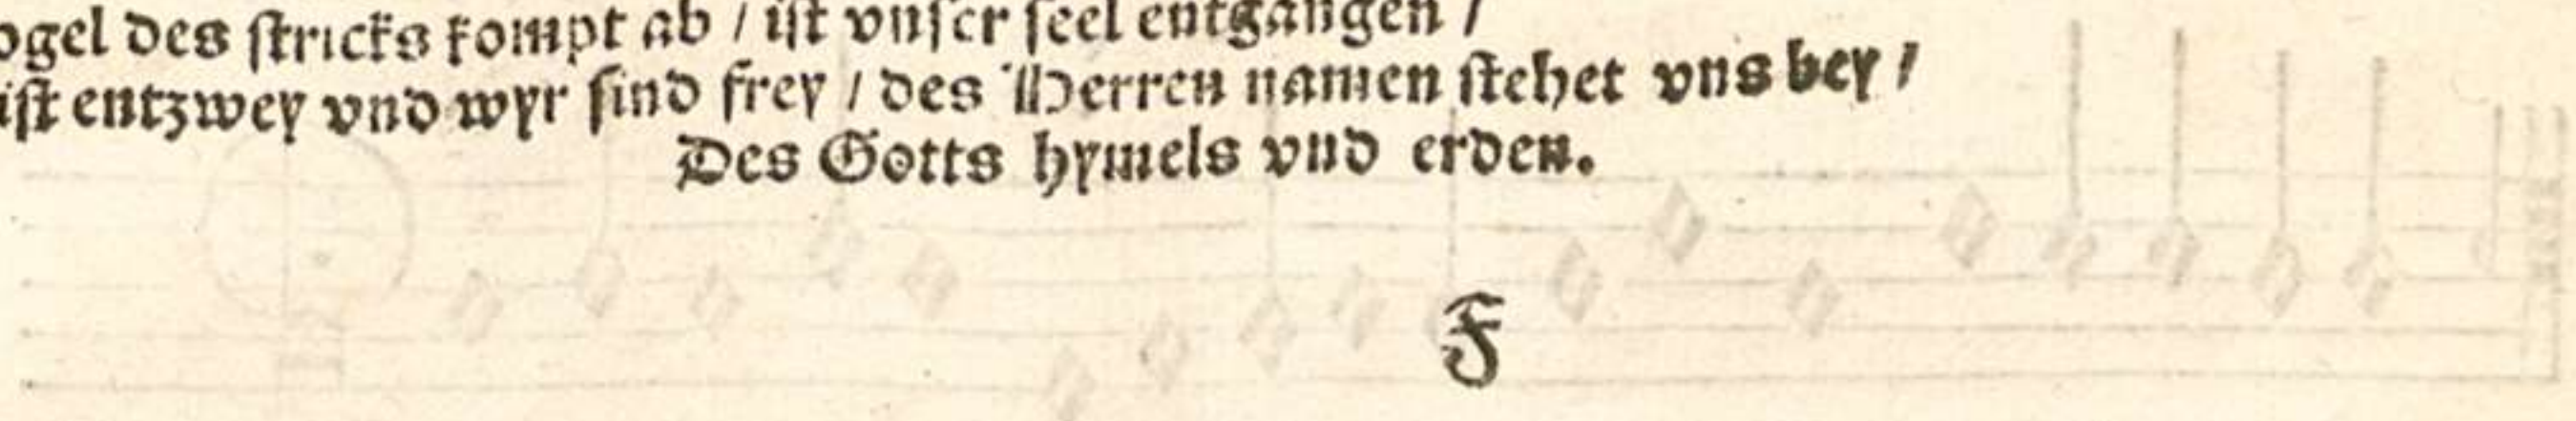 ogel des stricks kompt ab / ist vnser seel entgangen /
ist entzwey vnd wyr sind frey / des Herren namen stehet vns bey /
Des Gotts hymels vnd erden.
F